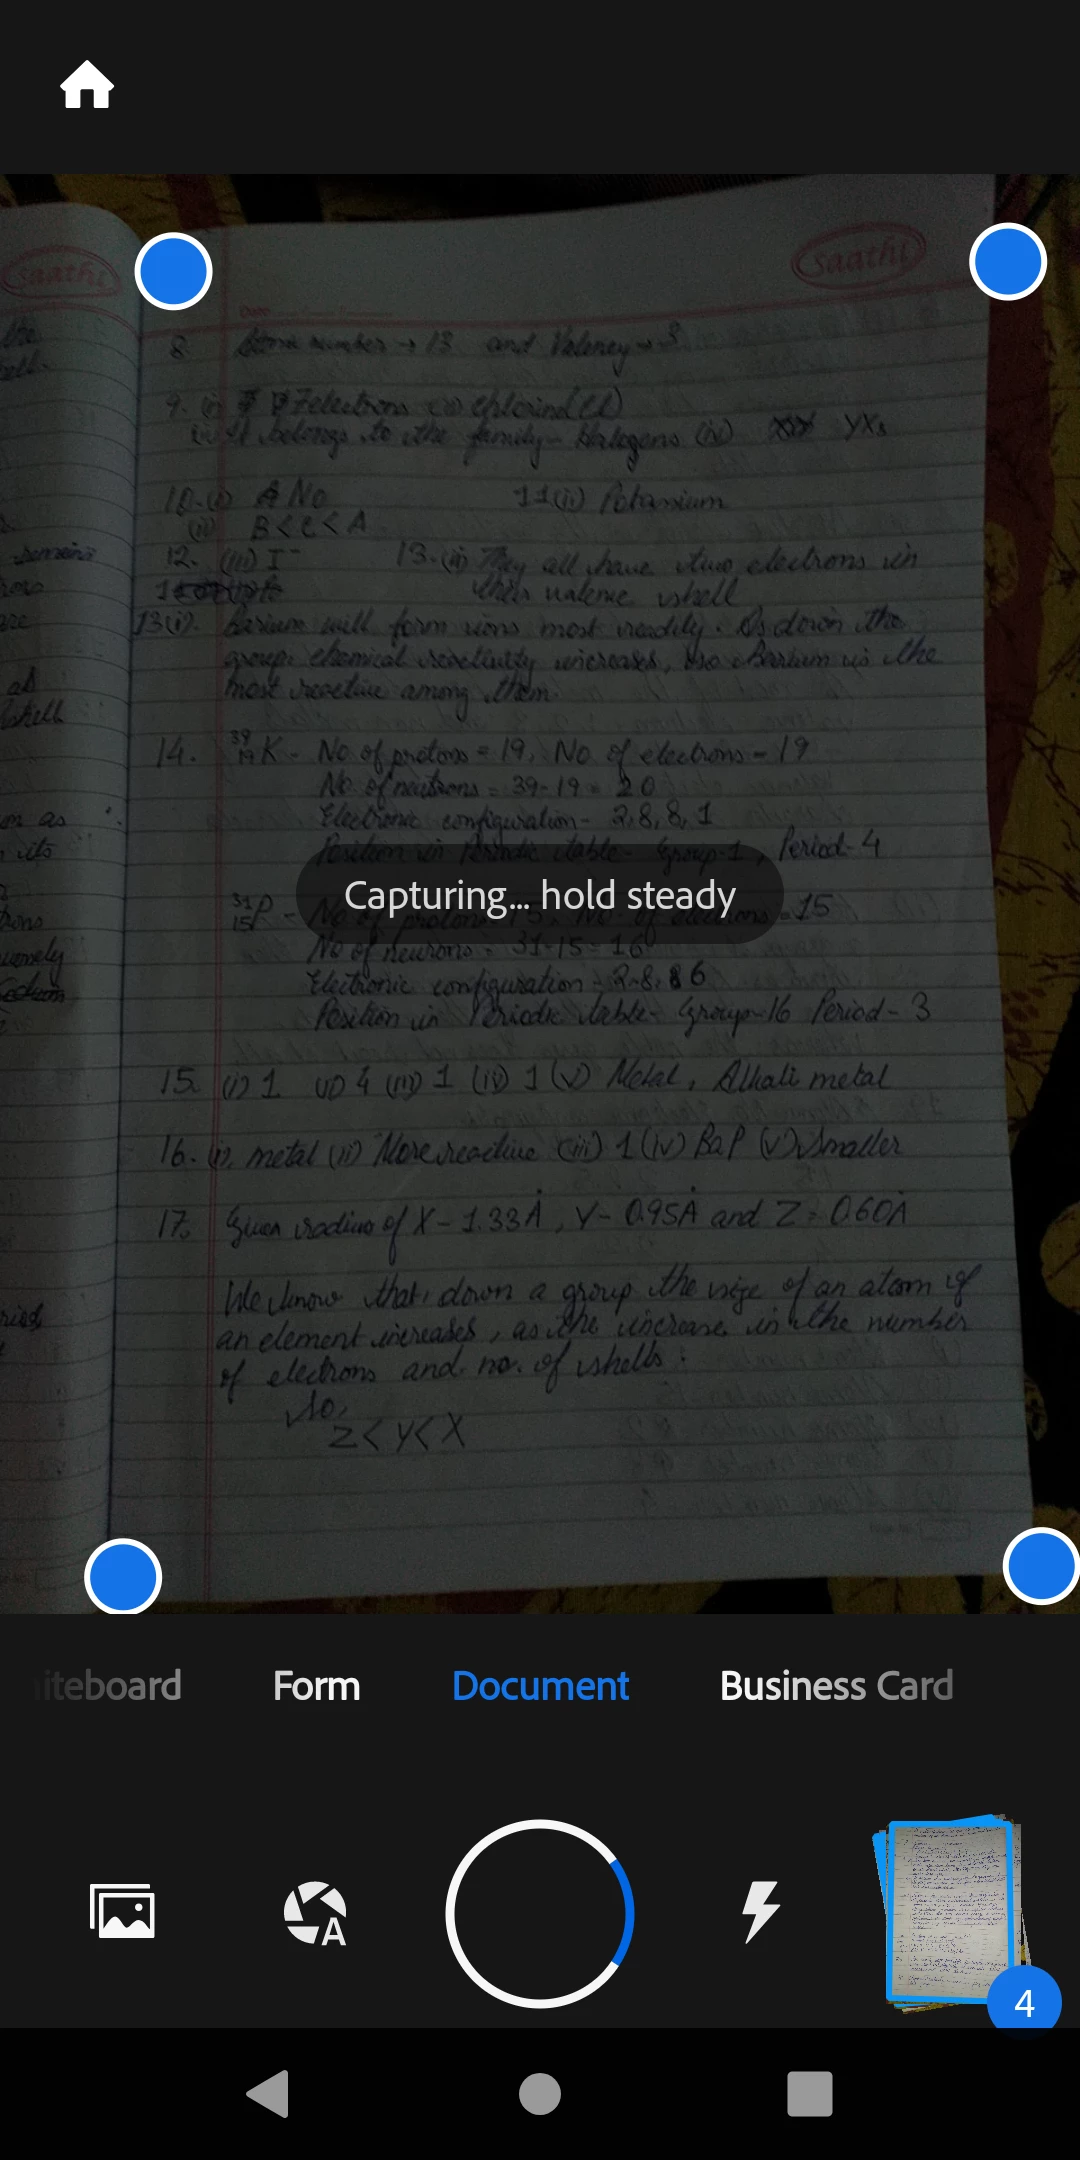 saathi
saathi
Date
8. Atomic number → 13 and Valency → 3
9. (i) 7 electrons (ii) Chlorine (Cl)
(iii) It belongs to the family - Halogens (iv) YX₃
10. (i) No 11 (ii) Potassium
(ii) B < C < A
12. (iii) I⁻ 13. (ii) They all have two electrons in
their valence shell
13(i). Barium will form ions most readily. As down the
group chemical reactivity increases, so Barium is the
most reactive among them.
14. ³⁹₁₉K - No of protons = 19, No of electrons - 19
No. of neutrons = 39-19 = 20
Electronic configuration - 2,8,8,1
Position in Periodic table - Group-1, Period-4
Capturing... hold steady
³¹₁₅P - No. of protons 15, No. of electrons = 15
No of neurons = 31-15 = 16
Electronic configuration - 2,8,6
Position in Periodic table - Group-16 Period - 3
15. (i) 1 (ii) 4 (iii) 1 (iv) 1 (v) Metal, Alkali metal
16. (i) metal (ii) More reactive (iii) 1 (iv) BaP (v) Smaller
17. Given radius of X - 1.33Å, Y - 0.95Å and Z - 0.60Å
We know that, down a group the size of an atom of
an element increases, as the increase in the number
of electrons and no. of shells.
So,
Z < Y < X
iteboard Form Document Business Card
A
4